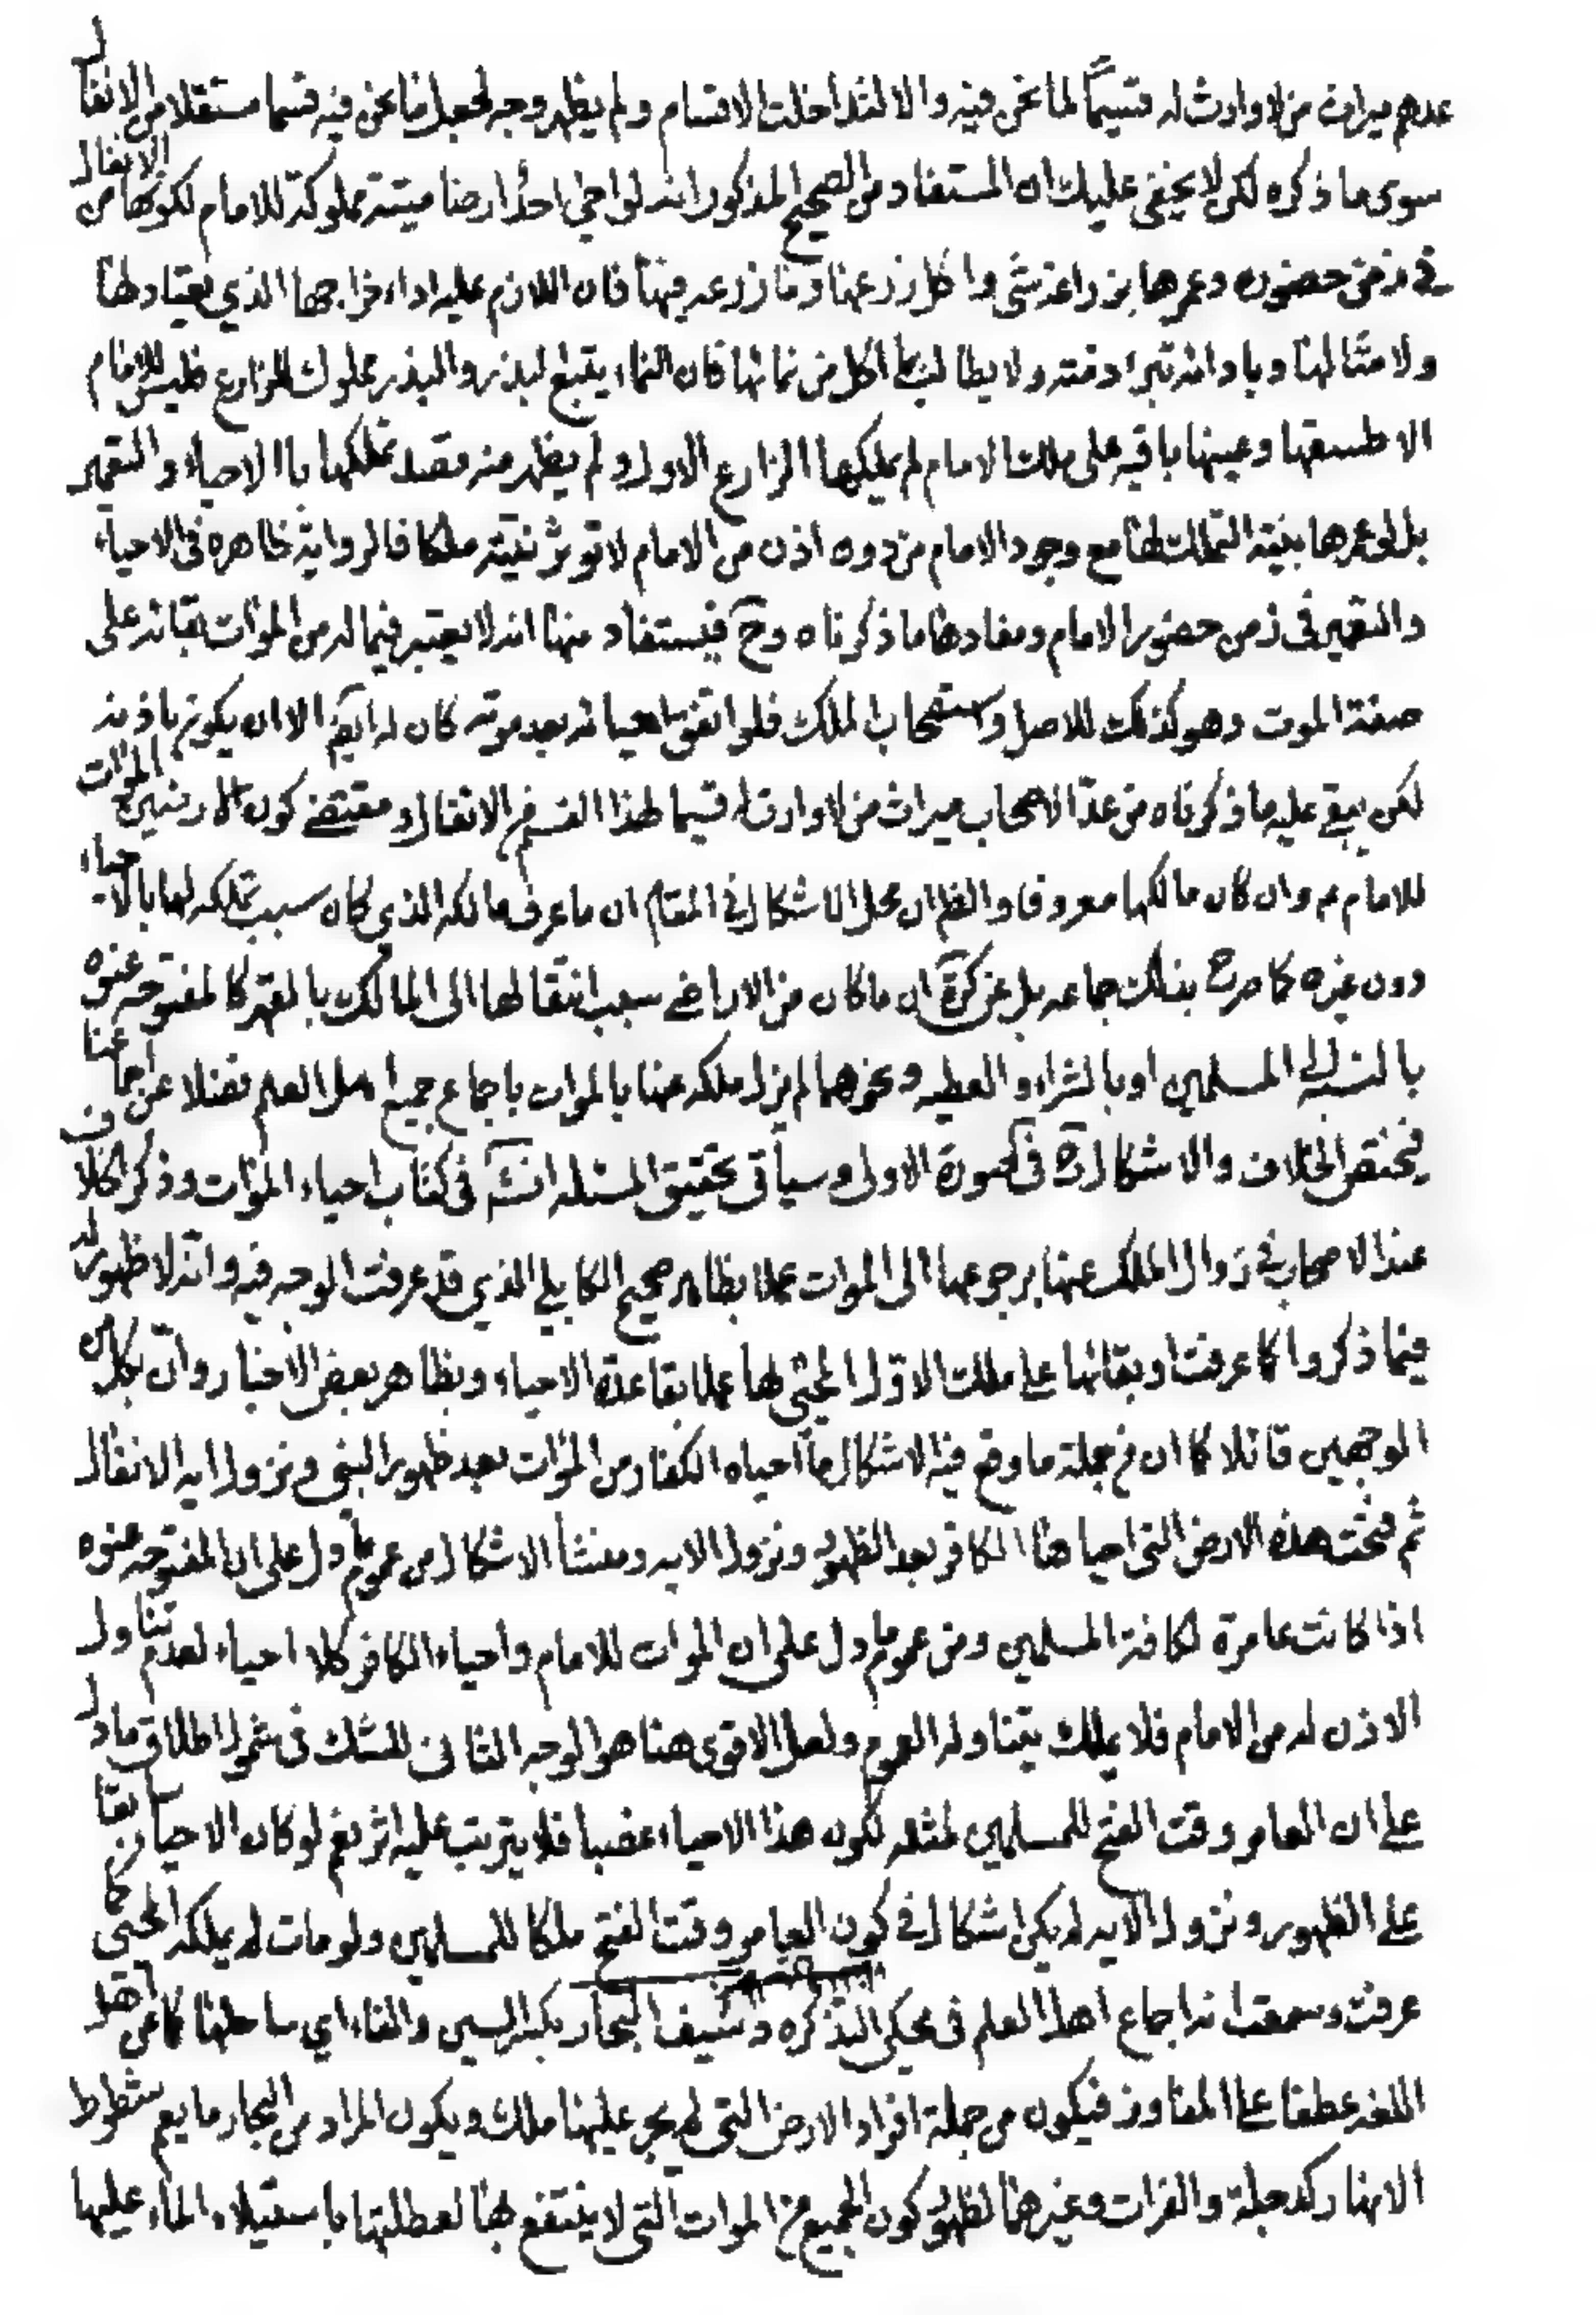 عدهم ميراث من لا وارث له قسيماً لما نحن فيه والا لتداخلت الاقسام ولم يظهر وجه لجعل ما نحن فيه قسما مستقلا من الانفال
سوى ما ذكره لكن لا يخفى عليك ان المستفاد من الصحيح المذكور انه لو احيى احد أرضا ميتة مملوكة للامام لكونها من الانفال
في زمن حضوره وعمرها بزراعة شئ واكل زرعها وما زرعه فيها فان اللازم عليه اداء خراجها الذي يعتاد لها
ولامثالها وبادائه تبرء ذمته ولا يطالب بما اكل من نمائها فان النماء يتبع البذر والبذر مملوك للزارع فليس للامام
الا طسقها وعينها باقيه على ملك الامام لم يملكها الزارع الاول ولم يظهر منه قصد تملكها باالاحياء والتعمير
بل لو عمرها بنية التملك لها مع وجود الامام من دون اذن من الامام لا تؤثر نيته ملكا فالرواية ظاهره فى الاحياء
والتعمير فى زمن حضور الامام ومفادها ما ذكرناه وح فيستفاد منها انه لا يعتبر فيما له من الموات بقائه على
صفة الموت وهو كذلك للاصل واستصحاب الملك فلو اتفق احيائه بعد موته كان له ايضا الا ان يكون باذنه
لكن يبقى عليه ما ذكرناه من عد الاصحاب ميراث من لا وارث له قسيما لهذا القسم من الانفال ومقتضى كون الارضين الموات
للامام م وان كان مالكها معروفا والظ ان محل الاشكال في المقام ان ما عرف مالكه الذي كان سبب تملكه لها بالاحياء
دون غيره كما صرح بذلك جماعه بل عن كرة ان ما كان من الاراضى سبب انتقالها الى المالك بالقهر كالمفتوحه عنوه
بالنسبة الى المسلمين او بالشراء والعطيه ونحوهما لم يزل ملكه عنها بالموات باجماع جميع اهل العلم فضلا عن اجماعنا
فيختص الخلاف والاشكال في الصورة الاولى وسيأتي تحقيق المسئله انش في كتاب احياء الموات وذكر الخلاف
عند الاصحاب في زوال الملك عنها برجوعها الى الموات عملا بظاهر صحيح الكابلي الذي قد عرفت الوجه فيه وانه لا ظهور له
فيما ذكروا كما عرفت او بقائها على ملك الاول المحيى لها عملا بقاعدة الاحياء وبظاهر بعض الاخبار وان بكل من
الوجهين قائلا كما ان من جملة ما وقع فيه الاشكال ما احياه الكفار من الموات بعد ظهور النبى ونزول ايه الانفال
ثم فتحت هذه الارض التى احياها الكافر بعد الظهور ونزول الايه ومنشأ الاشكال من عموم ما دل على ان المفتوحه عنوه
اذا كانت عامرة لكافة المسلمين ومن عموم ما دل على ان الموات للامام واحياء الكافر كلا احياء لعدم تناول
الاذن له من الامام فلا يملك بتناوله العموم ولعل الاقوى هنا هو الوجه الثاني للشك فى شمول اطلاق ما دل
على ان العامر وقت الفتح للمسلمين لمثله لكون هذا الاحياء غصبا فلا يترتب عليه اثر نعم لو كان الاحياء سابقا
على الظهور ونزول الايه لم يكن اشكال في كون العامر وقت الفتح ملكا للمسلمين ولو مات له يملكه المحيى كما
عرفت وسمعت انه اجماع اهل العلم فى محكى التذكره وسيف البحار بكسر السين والفاء اي ساحلها كما عن اهل
اللغه عطفا على المفاوز فيكون من جملة افراد الارض التى لم يجر عليها ملك ويكون المراد من البحار ما يعم شطوط
الانهار كدجلة والفرات وغيرها لظهور كون الجميع من الموات التى لا ينتفع بها لعطلتها باستيلاء الماء عليها